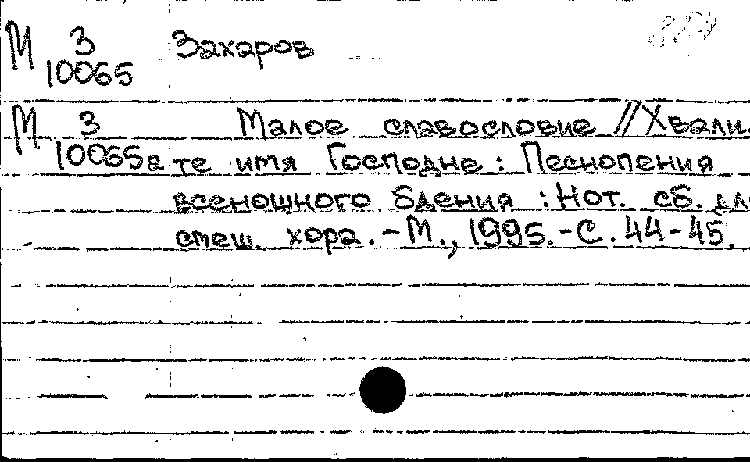 М 3 Захаров
10065
М 3 Малое славословие // Хвали
10065а те имя Господне : Песнопения
всенощного бдения : Нот. сб. для
смеш. хора. – М., 1995. – С. 44-45.